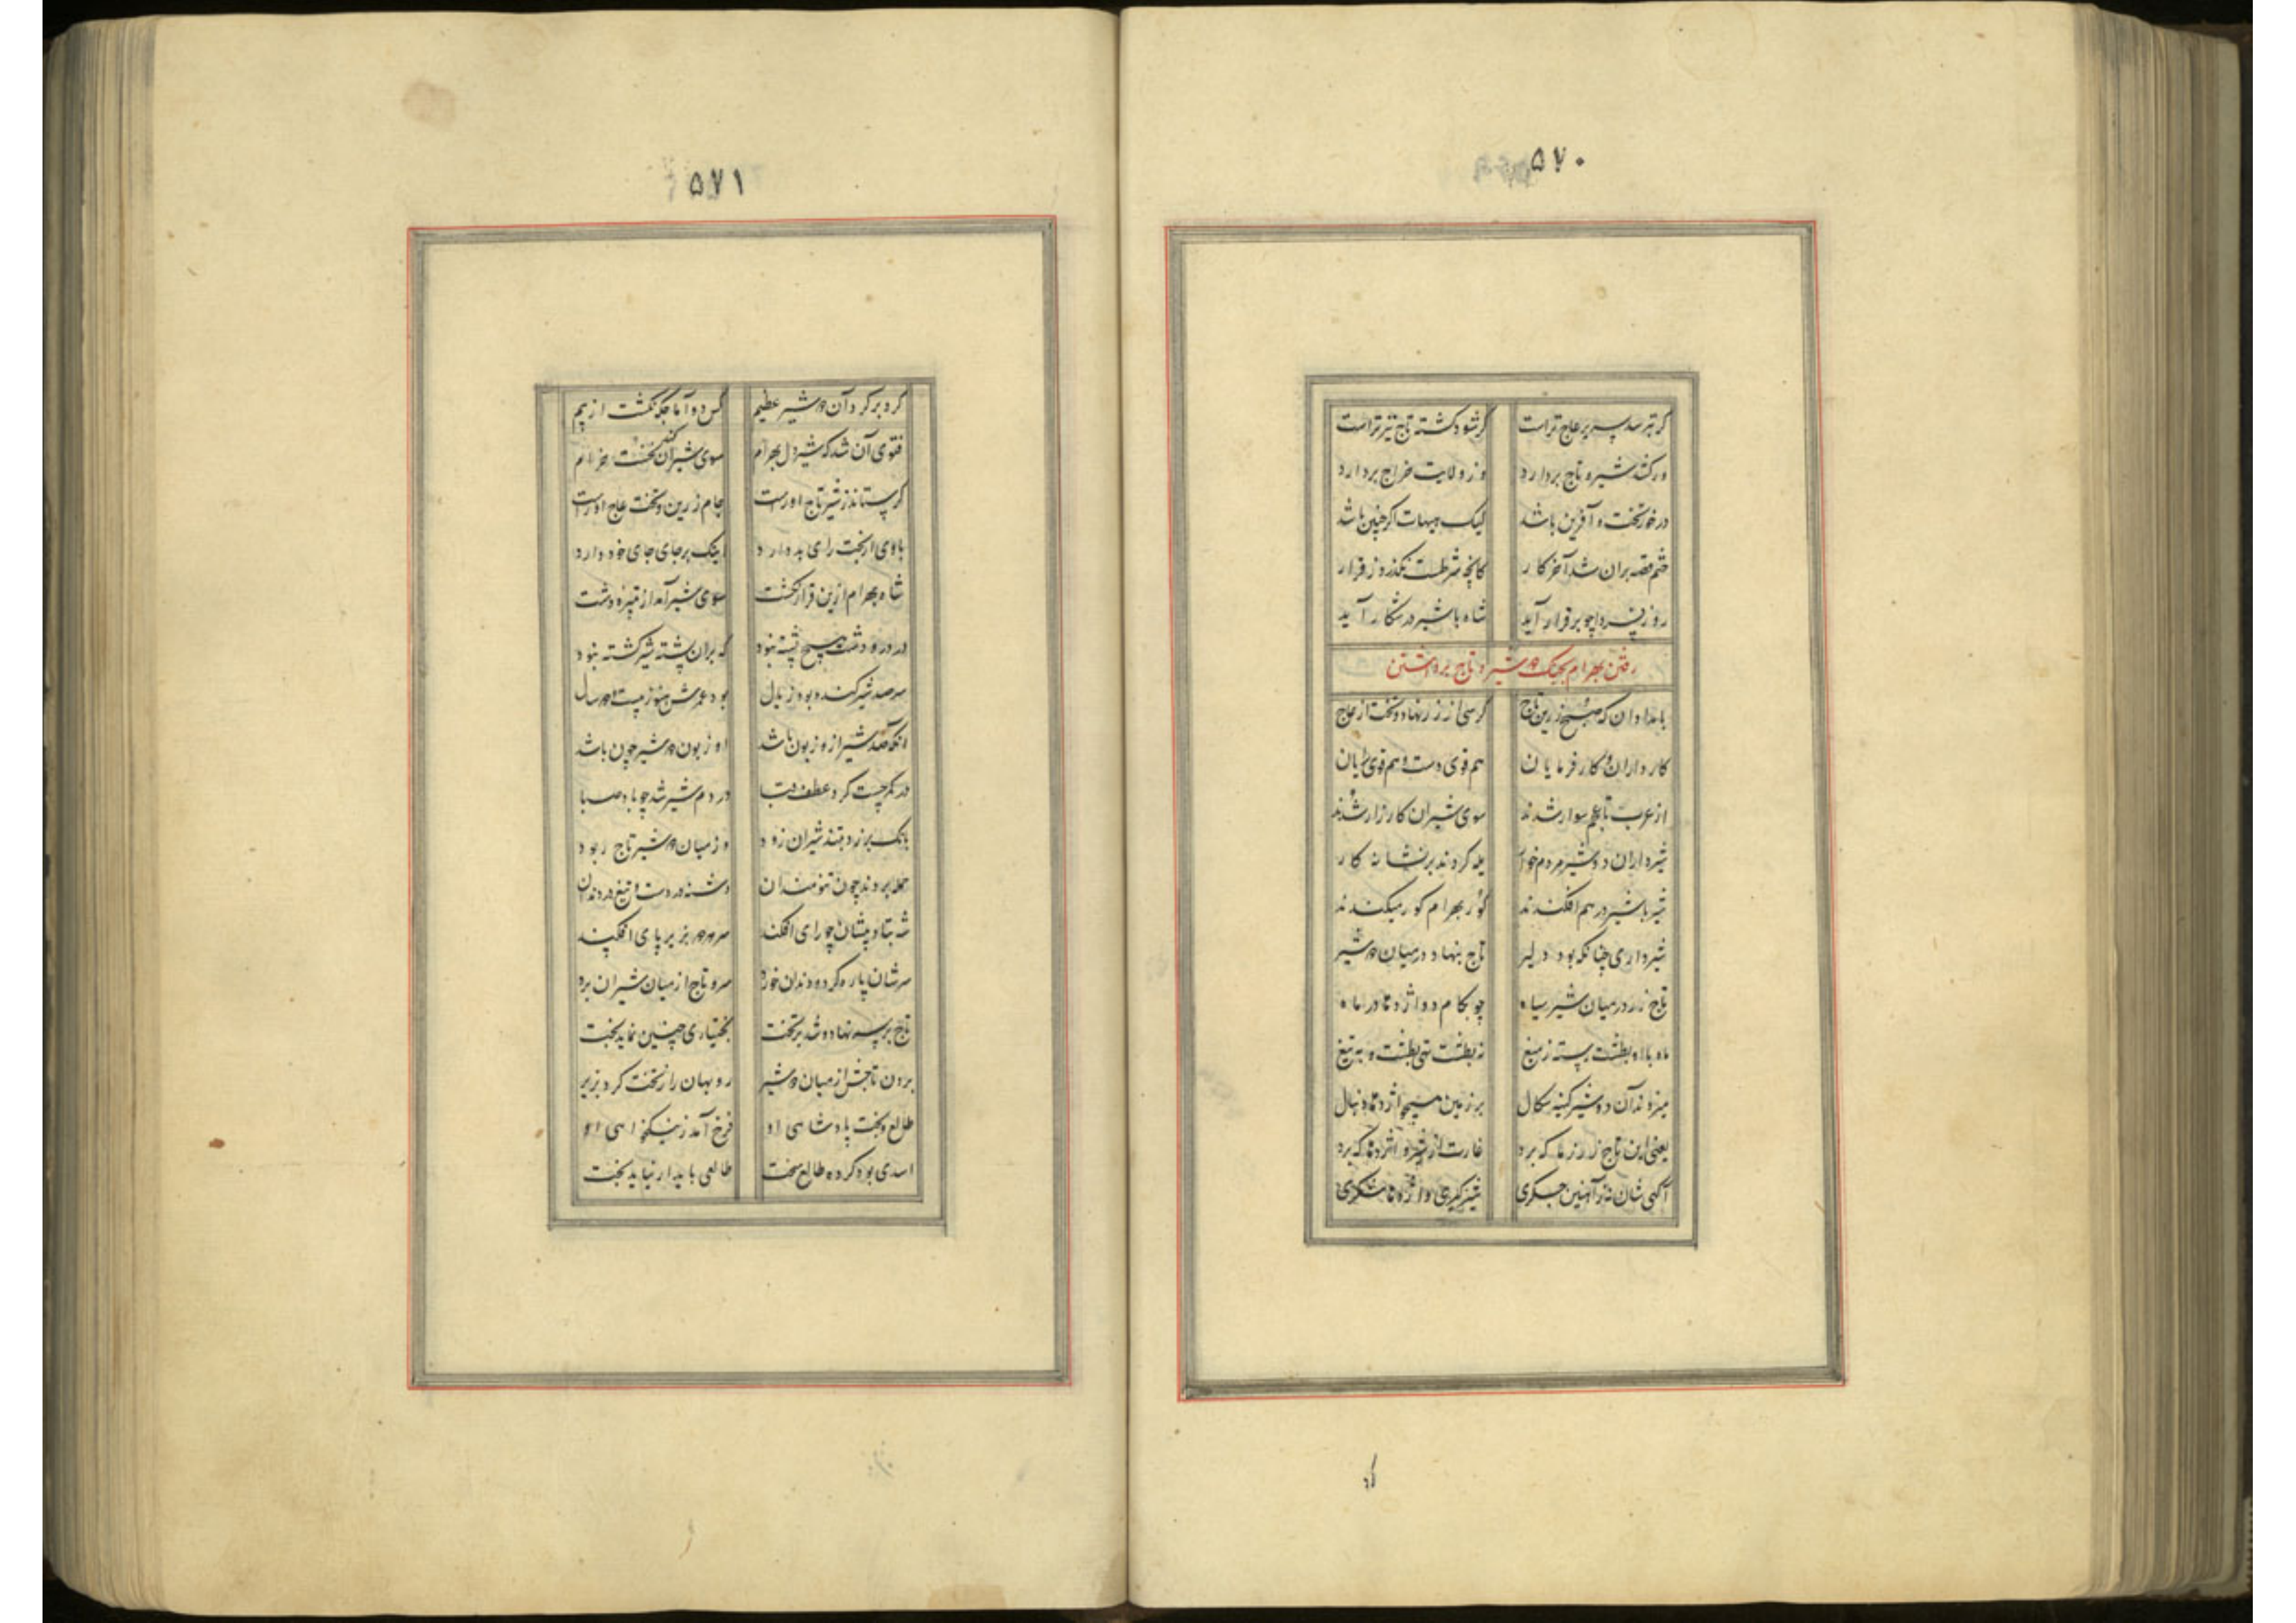 ۵۷۰
گر بترسد سریر عاج تراست گر شود کشته تاج نیز تراست
ور کشد شیر و تاج بردارد وز ولایت خراج بردارد
در خور تخت و آفرین باشد لیک هیهات اگر چنین باشد
ختم قصه بران شد آخر کار کانچه شرطست نگذرد ز قرار
روز فردا چو برقرار آید شاه با شیر در شکار آید
رفتن بهرام بجنگ دو شیر و تاج برداشتن
بامدادان که صبح زرین تاج کرسی از زر نهاد و تخت از عاج
کارداران و کارفرمایان هم قوی دست و هم قوی رایان
از عرب تا عجم سوار شدند سوی شیران کارزار شدند
شیرداران دو شیر مردم خوار یله کردند بر نشانه کار
شیر با شیر درهم افکندند گور بهرام گور میکندند
شیرداری چنانکه بود دلیر تاج بنهاد در میان دو شیر
تاج زر در میان شیر سیاه چو بکام دو اژدها در ماه
ماه با او بطشت رسته ز میغ نه بطشت تهی بطشت و به تیغ
میزدند آن دو شیر کینه سگال بر زمین همچو اژدها دنبال
یعنی این تاج زر ز ما که برد غارت از شیر و اژدها که برد
آگهی شان نه ز آهنین جگری شیرگیری و اژدها شکری
گرد
۵۷۱
گرد بر گرد آن دو شیر عظیم کس دو آماجگه نگشت از بیم
فتوی آن شد که شیردل بهرام سوی شیران کند نخست خرام
گر ستاند ز شیر تاج او راست جام زرین و تخت عاج اوراست
یا وی از تخت رای بردارد اینک بر جای جای خود دارد
شاه بهرام ازین قرار نگشت سوی شیر آمد از تیره دشت
در دره و دشت هیچ پشته نبود که بران پشته شیر کشته نبود
سر صد شیر کنده بود ز یال بود عمرش هنوز بیست دو سال
آنکه صد شیر ازو زبون باشد او زبون دو شیر چون باشد
در کمر چست کرد عطف قبا در دم شیر شد چو باد صبا
بانک برزد بتند شیران زود وز میان دو شیر تاج ربود
حمله بردند چون تنومندان دشنه در دست و تیغ در دندان
شه بتادیبشان چو رای افکند سر هر دو بزیر پای افکند
سرشان پاره کرد و دندان خورد سر و تاج از میان شیران برد
تاج بر سر نهاد و شد بر تخت بختیاری چنین نماید بخت
بردن تاجش از میان دو شیر روبهان را ز تخت کرد بزیر
طالع و بخت پادشاهی او فرخ آمد ز نیکخواهی او
اسدی بود کرده طالع سخت طالعی پایدار نیاید بخت